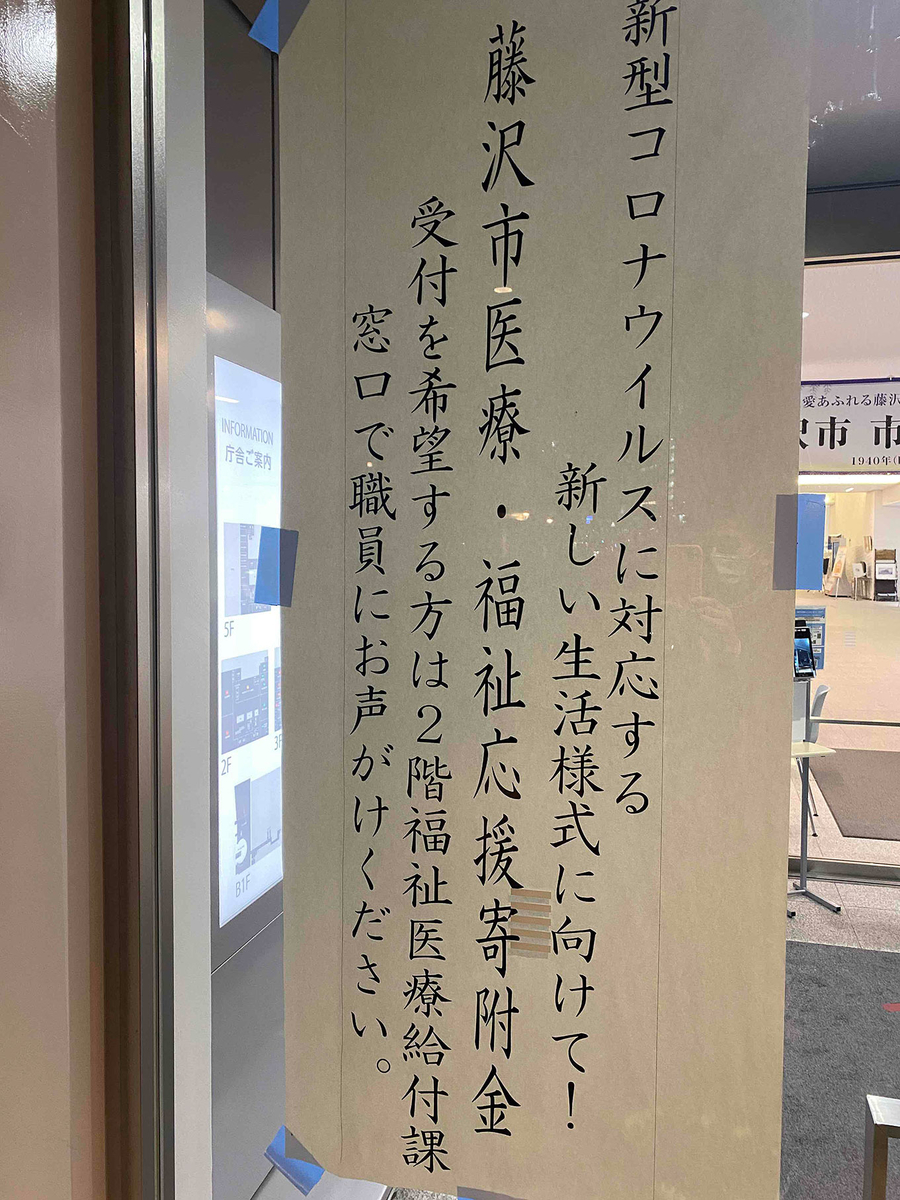 新型コロナウイルスに対応する
新しい生活様式に向けて！
藤沢市医療・福祉応援寄附金
受付を希望する方は２階福祉医療給付課
窓口で職員にお声がけください。
INFORMATION
庁舎ご案内
5F
2F
3F
B1F
愛あふれる藤沢
沢市 市
1940年